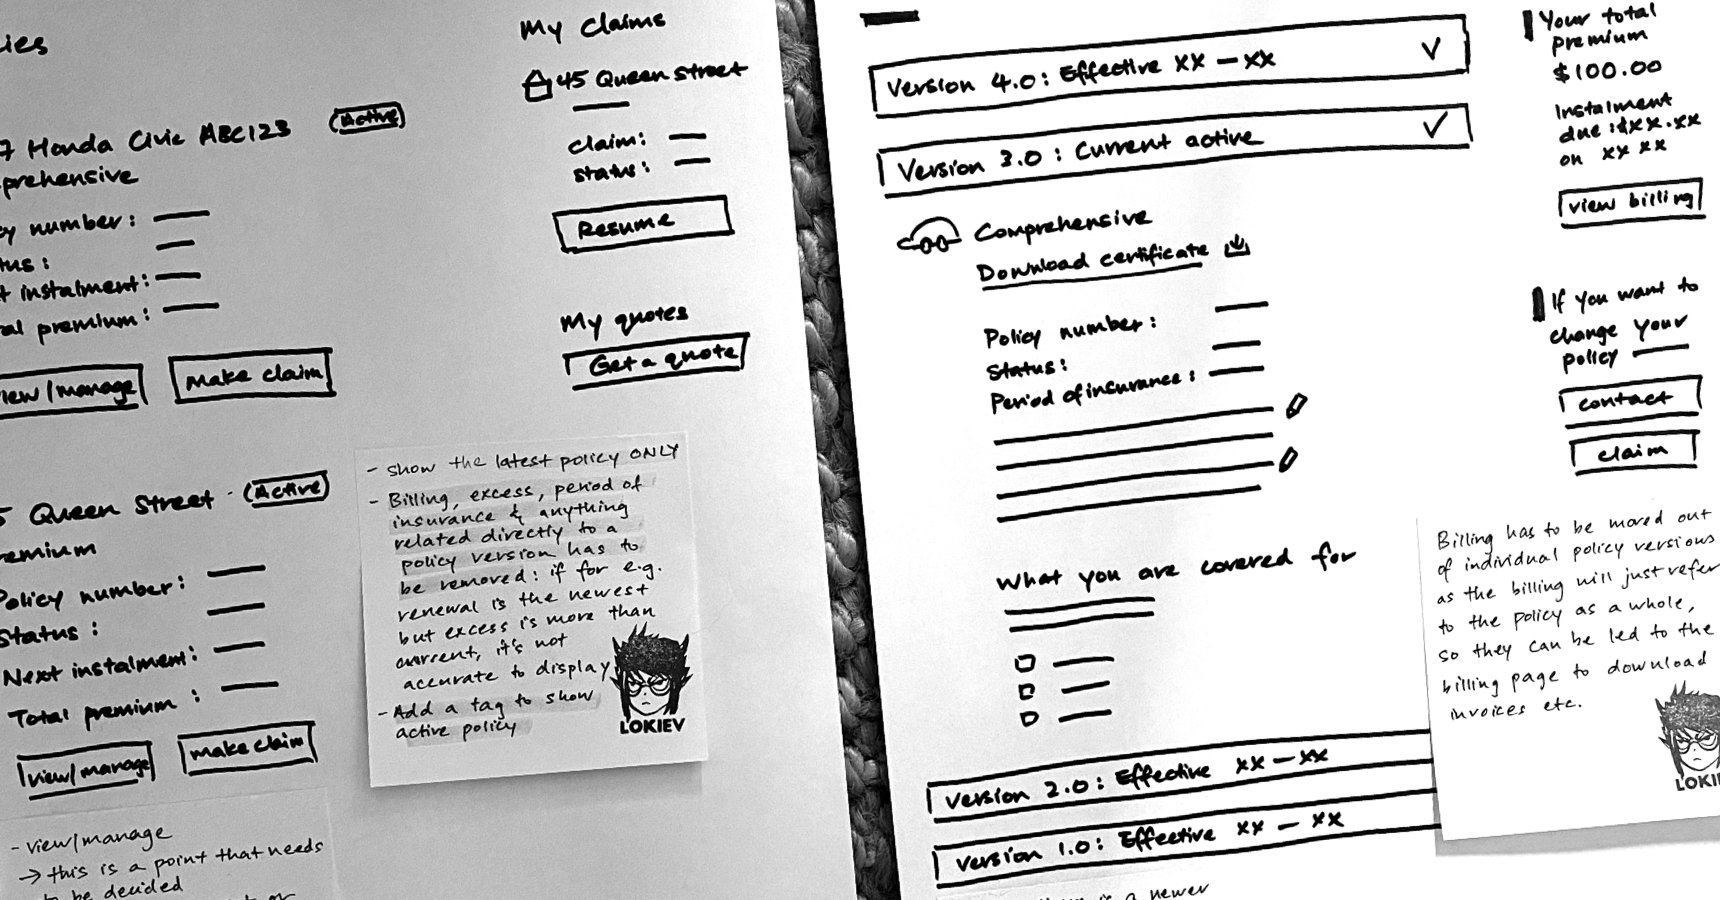 ies
7 Honda Civic ABC123
Active
prehensive
cy number:
tus:
t instalment:
al premium:
iew/manage
Make claim
5 Queen Street
Active
emium
Policy number:
Status:
Next instalment:
Total premium:
view/manage
make claim
- view/manage
→ this is a point that needs
to be decided
My Claims
45 Queen Street
claim:
status:
Resume
My quotes
Get a quote
- show the latest policy ONLY
- Billing, excess, period of
insurance & anything
related directly to a
policy version has to
be removed: if for e.g.
renewal is the newest
but excess is more than
current, it's not
accurate to display
- Add a tag to show
active policy
LOKIEV
Version 4.0: Effective XX - XX
Version 3.0: Current active
Comprehensive
Download certificate
Policy number:
Status:
Period of insurance:
What you are covered for
Version 2.0: Effective XX - XX
Version 1.0: Effective XX - XX
is a newer
Your total
premium
$100.00
Instalment
due: $XX.XX
on XX XX
view billing
If you want to
change your
policy
contact
claim
Billing has to be moved out
of individual policy versions
as the billing will just refer
to the policy as a whole,
so they can be led to the
billing page to download
invoices etc.
LOKIE